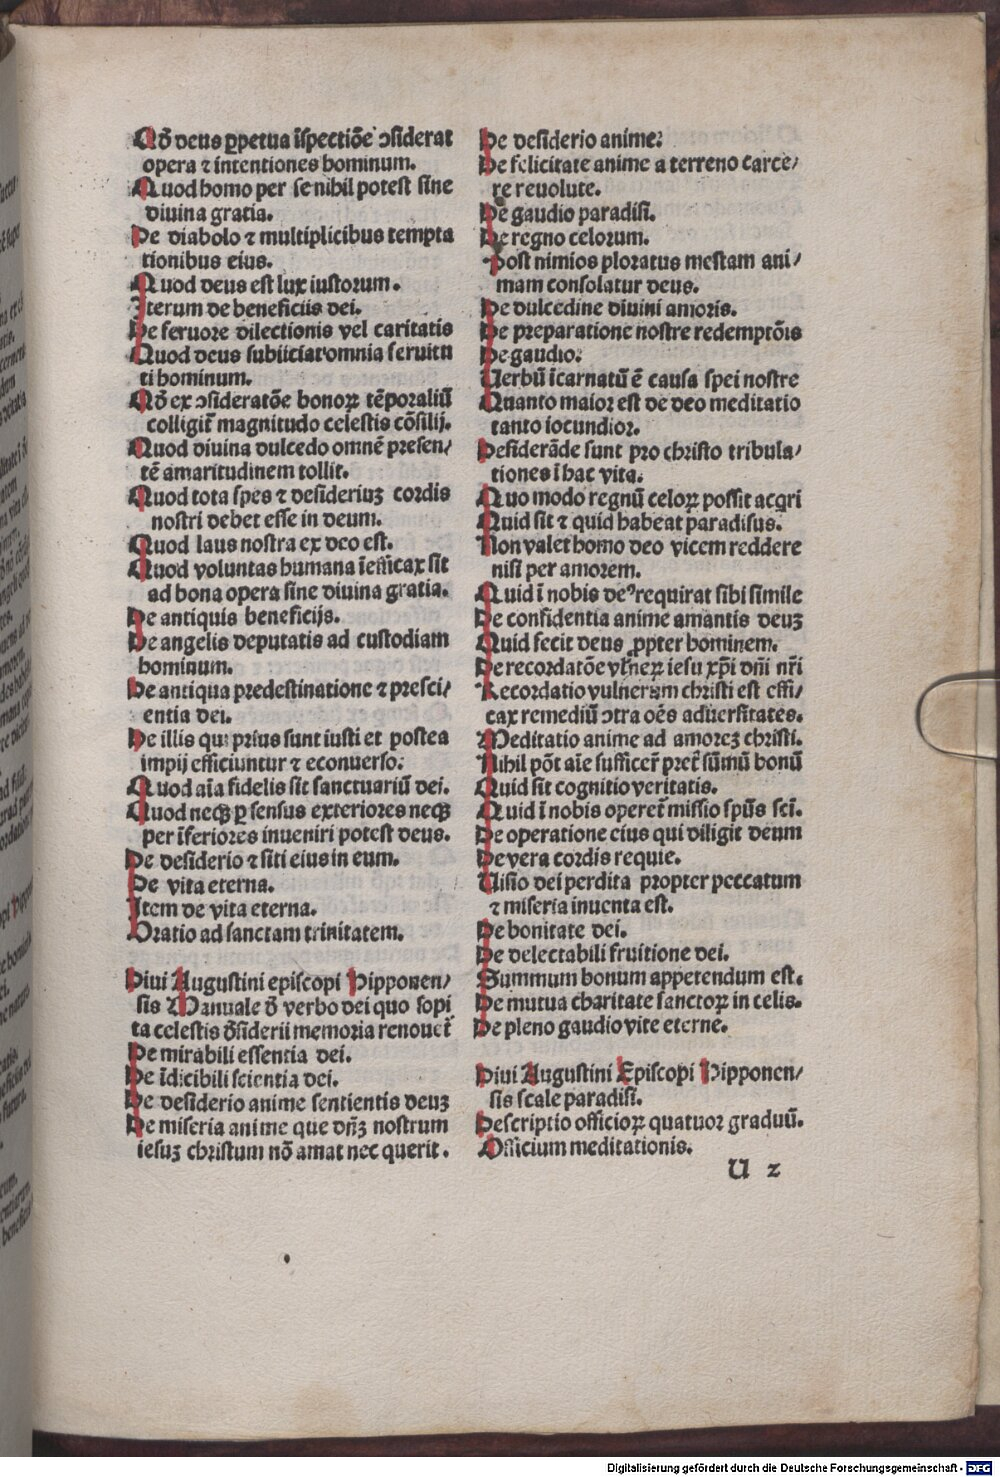 Qđ deus ꝑpetua īspectiōe ↄsiderat
opera ⁊ intentiones hominum.
Quod homo per se nihil potest sine
diuina gratia.
De diabolo ⁊ multiplicibus tempta
tionibus eius.
Quod deus est lux iustorum.
Iterum de beneficiis dei.
De feruore dilectionis vel caritatis
Quod deus subiiciat omnia seruitu
ti hominum.
Qđ ex ↄsideratōe bonoꝝ tēporaliū
colligit̄ magnitudo celestis cōsilij.
Quod diuina dulcedo omnē presen/
tē amaritudinem tollit.
Quod tota spes ⁊ desideriuꝫ cordis
nostri debet esse in deum.
Quod laus nostra ex deo est.
Quod voluntas humana īefficax sit
ad bona opera sine diuina gratia.
De antiquis beneficijs.
De angelis deputatis ad custodiam
hominum.
De antiqua predestinatione ⁊ presci/
entia dei.
De illis qui prius sunt iusti et postea
impij efficiuntur ⁊ econuerso.
Quod aīa fidelis sit sanctuariū dei.
Quod neqꝫ ꝑ sensus exteriores neqꝫ
per īferiores inueniri potest deus.
De desiderio ⁊ siti eius in eum.
De vita eterna.
Item de vita eterna.
Oratio ad sanctam trinitatem.
Diui Augustini episcopi Hipponen/
sis Manuale đ verbo dei quo sopi
ta celestis đsiderii memoria renouet̄
De mirabili essentia dei.
De īdicibili scientia dei.
De desiderio anime sentientis deuꝫ
De miseria anime que dn̄ꝫ nostrum
iesuꝫ christum nō amat nec querit.
De desiderio anime.
De felicitate anime a terreno carce/
re reuolute.
De gaudio paradisi.
De regno celorum.
Post nimios ploratus mestam ani/
mam consolatur deus.
De dulcedine diuini amoris.
De preparatione nostre redemptōis
De gaudio.
Uerbū īcarnatū ē causa spei nostre
Quanto maior est de deo meditatio
tanto iocundior.
Desiderāde sunt pro christo tribula/
tiones ī hac vita.
Quo modo regnū celoꝝ possit acqri
Quid sit ⁊ quid habeat paradisus.
Non valet homo deo vicem reddere
nisi per amorem.
Quid ī nobis deꝰ requirat sibi simile
De confidentia anime amantis deuꝫ
Quid fecit deus ꝓpter hominem.
De recordatōe vlneꝝ iesu xp̄i dn̄i nr̄i
Recordatio vulnerum christi est effi/
cax remediū ↄtra oēs aduersitates.
Meditatio anime ad amoreꝫ christi.
Nihil pōt aīe sufficer̄ pret̄ sūmū bonū
Quid sit cognitio veritatis.
Quid ī nobis operet̄ missio sp̄us sc̄i.
De operatione eius qui diligit deum
De vera cordis requie.
Uisio dei perdita propter peccatum
⁊ miseria inuenta est.
De bonitate dei.
De delectabili fruitione dei.
Summum bonum appetendum est.
De mutua charitate sanctoꝝ in celis.
De pleno gaudio vite eterne.
Diui Augustini Episcopi Hipponen/
sis scale paradisi.
Descriptio officioꝝ quatuor graduū.
Officium meditationis.
U 2
Digitalisierung gefördert durch die Deutsche Forschungsgemeinschaft - DFG